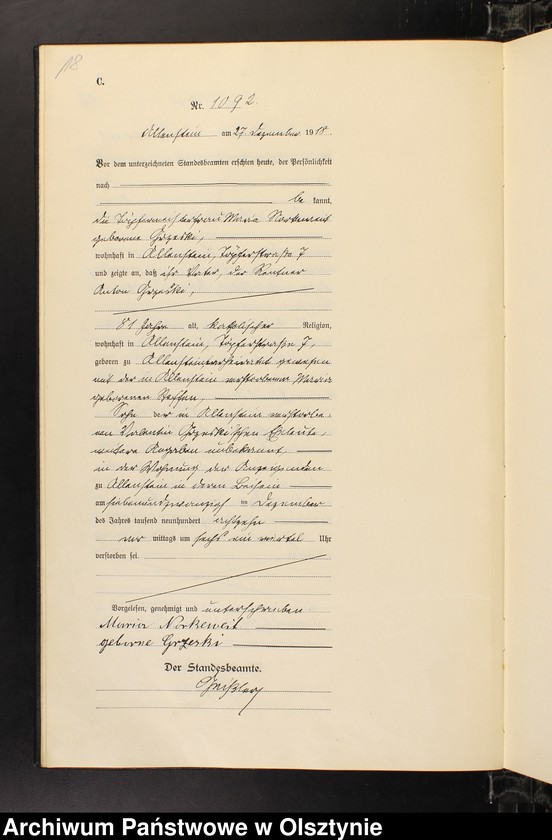 118
C.
Nr. 1092.
Allenstein am 27. Dezember 1918.
Vor dem unterzeichneten Standesbeamten erschien heute, der Persönlichkeit
nach
be kannt,
die Töpfermeisterfrau Maria Norkeweit
geborene Grzeski,
wohnhaft in Allenstein, Töpferstraße 7
und zeigte an, daß ihr Vater, der Rentner
Anton Grzeski,
81 Jahre alt, katholischer Religion,
wohnhaft in Allenstein, Töpferstraße 7,
geboren zu Allenstein verheiratet gewesen
mit der in Allenstein verstorbenen Maria
geborenen Steffen,
Sohn der in Allenstein verstorbe-
nen Valentin Grzeski'schen Eheleute,
weitere Angaben unbekannt,
in der Wohnung der Anzeigenden
zu Allenstein in deren Beisein
am siebenundzwanzigsten Dezember
des Jahres tausend neunhundert achtzehn
vor mittags um sechs ein viertel Uhr
verstorben sei.
Vorgelesen, genehmigt und unterschrieben
Maria Norkeweit
geborne Grzeski
Der Standesbeamte.
Archiwum Państwowe w Olsztynie